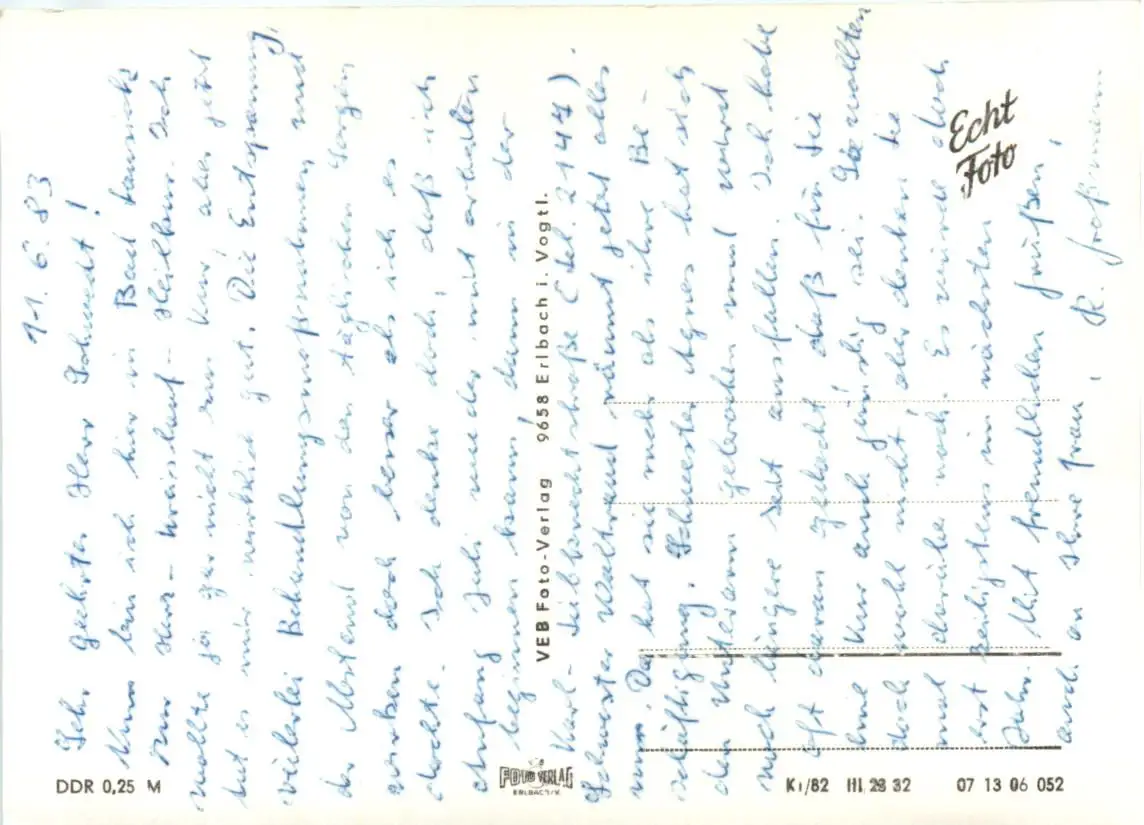 11.6.83
Sehr geehrter Herr Schmedt!
Nun bin ich hier in Bad Lausick
zur Herz-Kreislauf-Heilkur. Ich
wollte ja gar nicht zur Kur aber jetzt
tut es mir wirklich gut. Die Entspannung,
vielerlei Behandlungsmaßnahmen und
der Abstand von den täglichen Sorgen
wirken doch besser als ich es
dachte. Ich denke doch, daß ich
Anfang Juli wieder mit arbeiten
beginnen kann, dann in der
Karl-Liebknechtstraße (Tel. 2144).
Schwester Waltraud räumt jetzt alles
um. Da hat sie mehr als ihre Be-
schäftigung. Schwester Agnes hat sich
den Unterarm gebrochen und wird
noch längere Zeit ausfallen. Ich habe
oft daran gedacht, daß für Sie
eine Kur auch günstig sei. Sie wollten
doch wohl nicht aber denken Sie
mal darüber nach. Es wird doch
erst zeitigstens im nächsten
Jahr. Mit freundlichen Grüßen,
auch an Ihre Frau,
R. Großmann
Echt
Foto
VEB Foto-Verlag 9658 Erlbach i. Vogtl.
DDR 0,25 M
FOTO VERLAG
ERLBACH/V.
K1/82 III 28 32 07 13 06 052